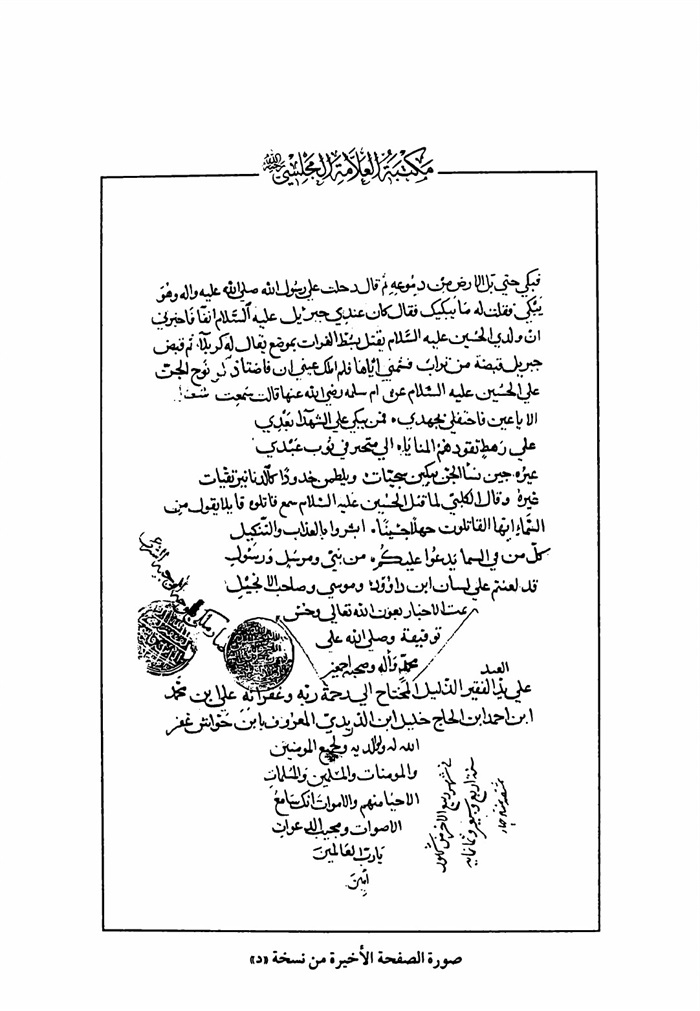 مكتبة العلامة المجلسي رحمه الله
فبكي حتي بل الارض من دموعه ثم قال دخلت علي رسول الله صلي الله عليه واله وهو
يبكي فقلت له ما يبكيك فقال كان عندي جبرئيل عليه السلام انفا فاخبرني
ان ولدي الحسين عليه السلام يقتل بشط الفرات بموضع يقال له كربلا ثم قبض
جبريل قبضة من تراب فشمني اياها فلم املك عيني ان فاضتا نوح الجن
علي الحسين عليه السلام عن ام سلمه رضي الله عنها قالت سمعت
الا ياعين فاحتفلي بجهدي فمن يبكي علي الشهدا بعدي
علي رهط تقودهم المنايا الي متجبر في ثوب عبدي
غيره جين نسا الجن يبكين شجيات ويلطمن خدودا كالدنانير نقيات
غيره وقال الكلبي لما قتل الحسين عليه السلام سمع قاتلوه قايلا يقول من
السماء ايها القاتلون جهلا حسينا ابشروا بالعذاب والتنكيل
كل من في السما يدعوا عليكم من نبي ومرسل ورسول
قد لعنتم علي لسان ابن داوود وموسي وصاحب الانجيل
تمت الاخبار بعون الله تعالي وحسن
توفيقه وصلي الله علي
محمد واله وصحبه اجمعين
العبد
علي يد الفقير الذليل المحتاج الي رحمة ربه وغفرانه علي ابن محمد
ابن احمد ابن الحاج خليل ابن المعروف بابن غفر
الله له ولوالديه ولجميع المومنين
والمومنات والمسلمين والمسلمات
الاحيا منهم والاموات انك سامع
الاصوات ومجيب الدعوات
يارب العالمين
امين
في شهر ربيع الاخر من شهور
سنة اربع وثمانمايه
صورة الصفحة الأخيرة من نسخة «د»